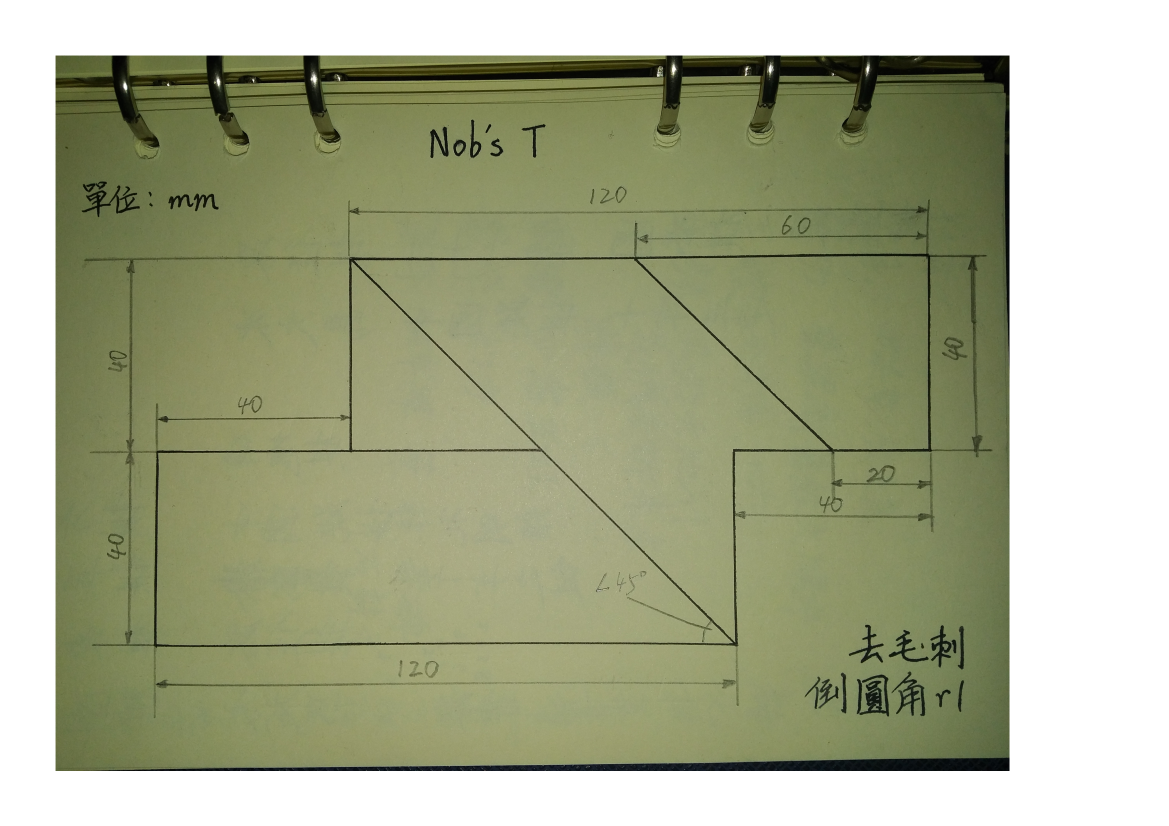 Nob's T
單位：mm
120
60
40
40
40
20
40
40
∠45°
120
去毛刺
倒圓角r1